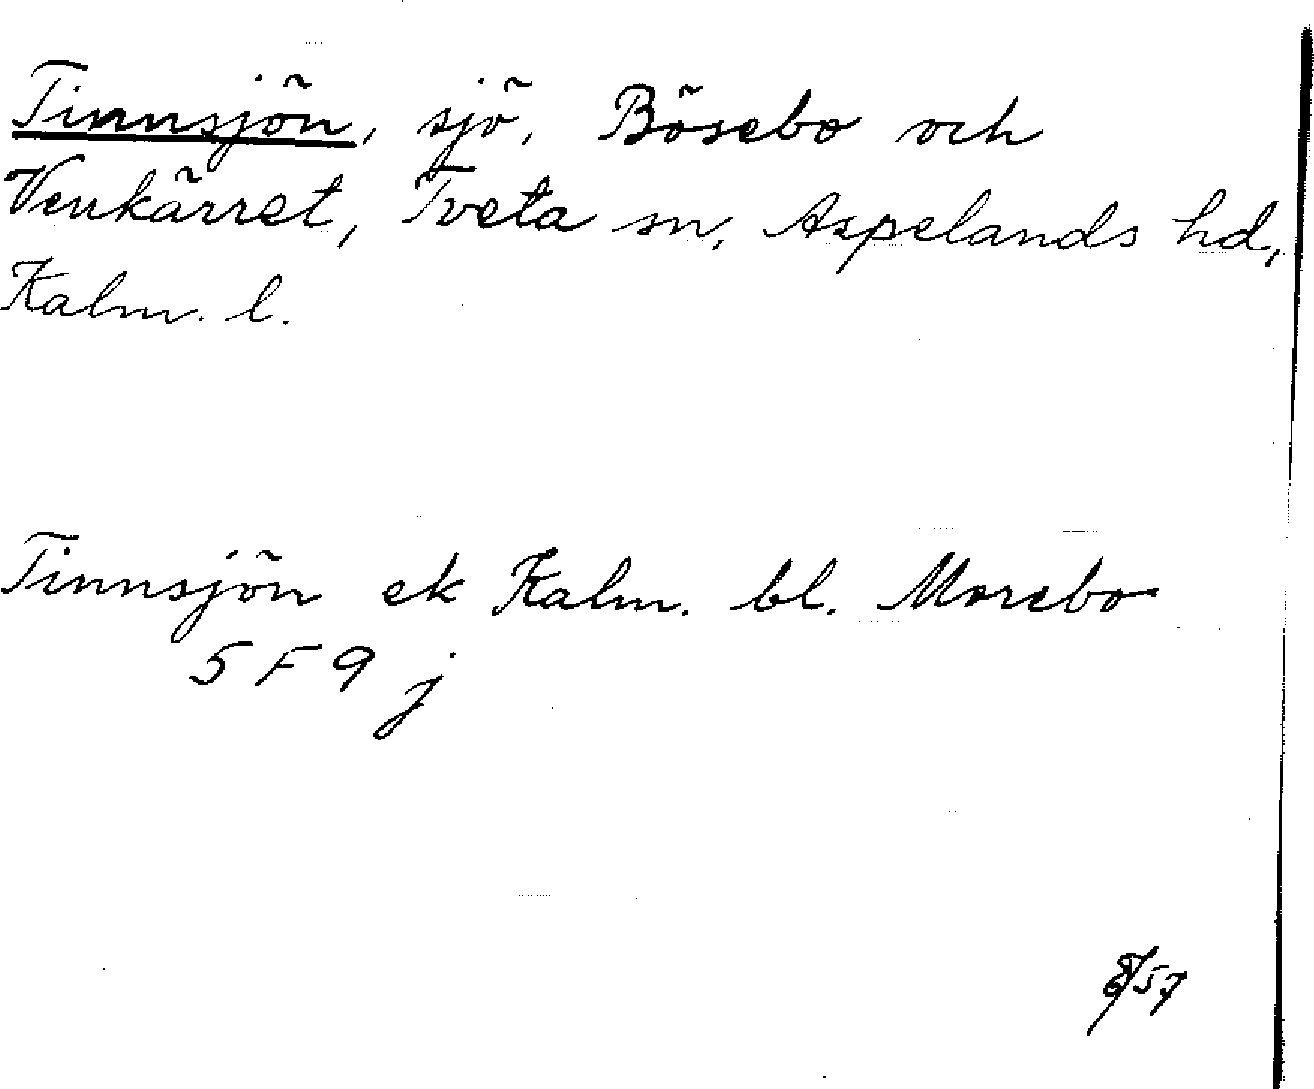 Tinnsjön, sjö, Bösebo och
Venkärret, Tveta sn, Aspelands hd,
Kalm. l.
Tinnsjön ek Kalm. bl. Morebo
5 F 9 j